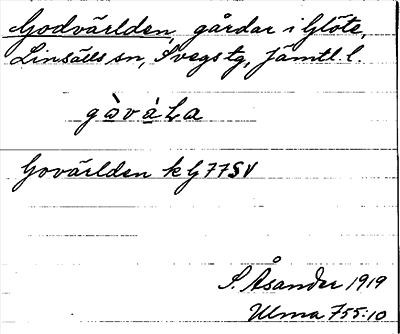 Godvärlden, gårdar i Glöte,
Linsälls sn, Svegs tg, Jämtl. l.
Govärlden k G 77 SV
S. Åsander 1919
Ulma 755:10